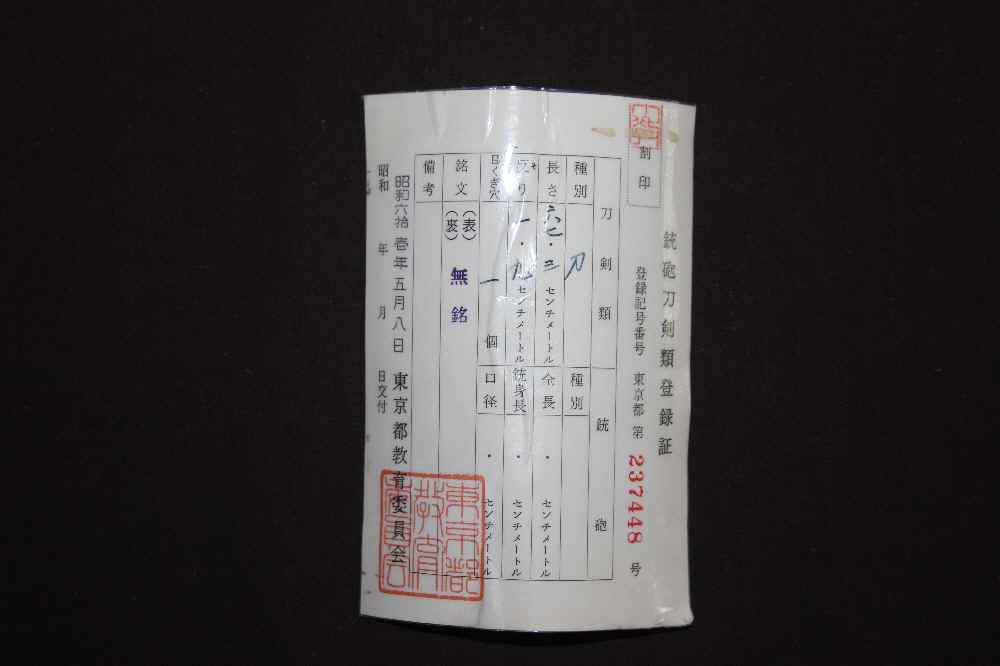 割印
銃砲刀剣類登録証
登録記号番号 東京都 第 237448 号
刀剣類
銃砲
種別 刀
種別
長さ 六七・三 センチメートル
全長 ・ センチメートル
反り 一・九 センチメートル
銃身長 ・ センチメートル
目くぎ穴 一 個
口径 ・ センチメートル
銘文 (表) 無銘
(裏)
備考
昭和六拾壱年五月八日 東京都教育委員会
昭和 年 月 日交付
東京都
教育
委員会